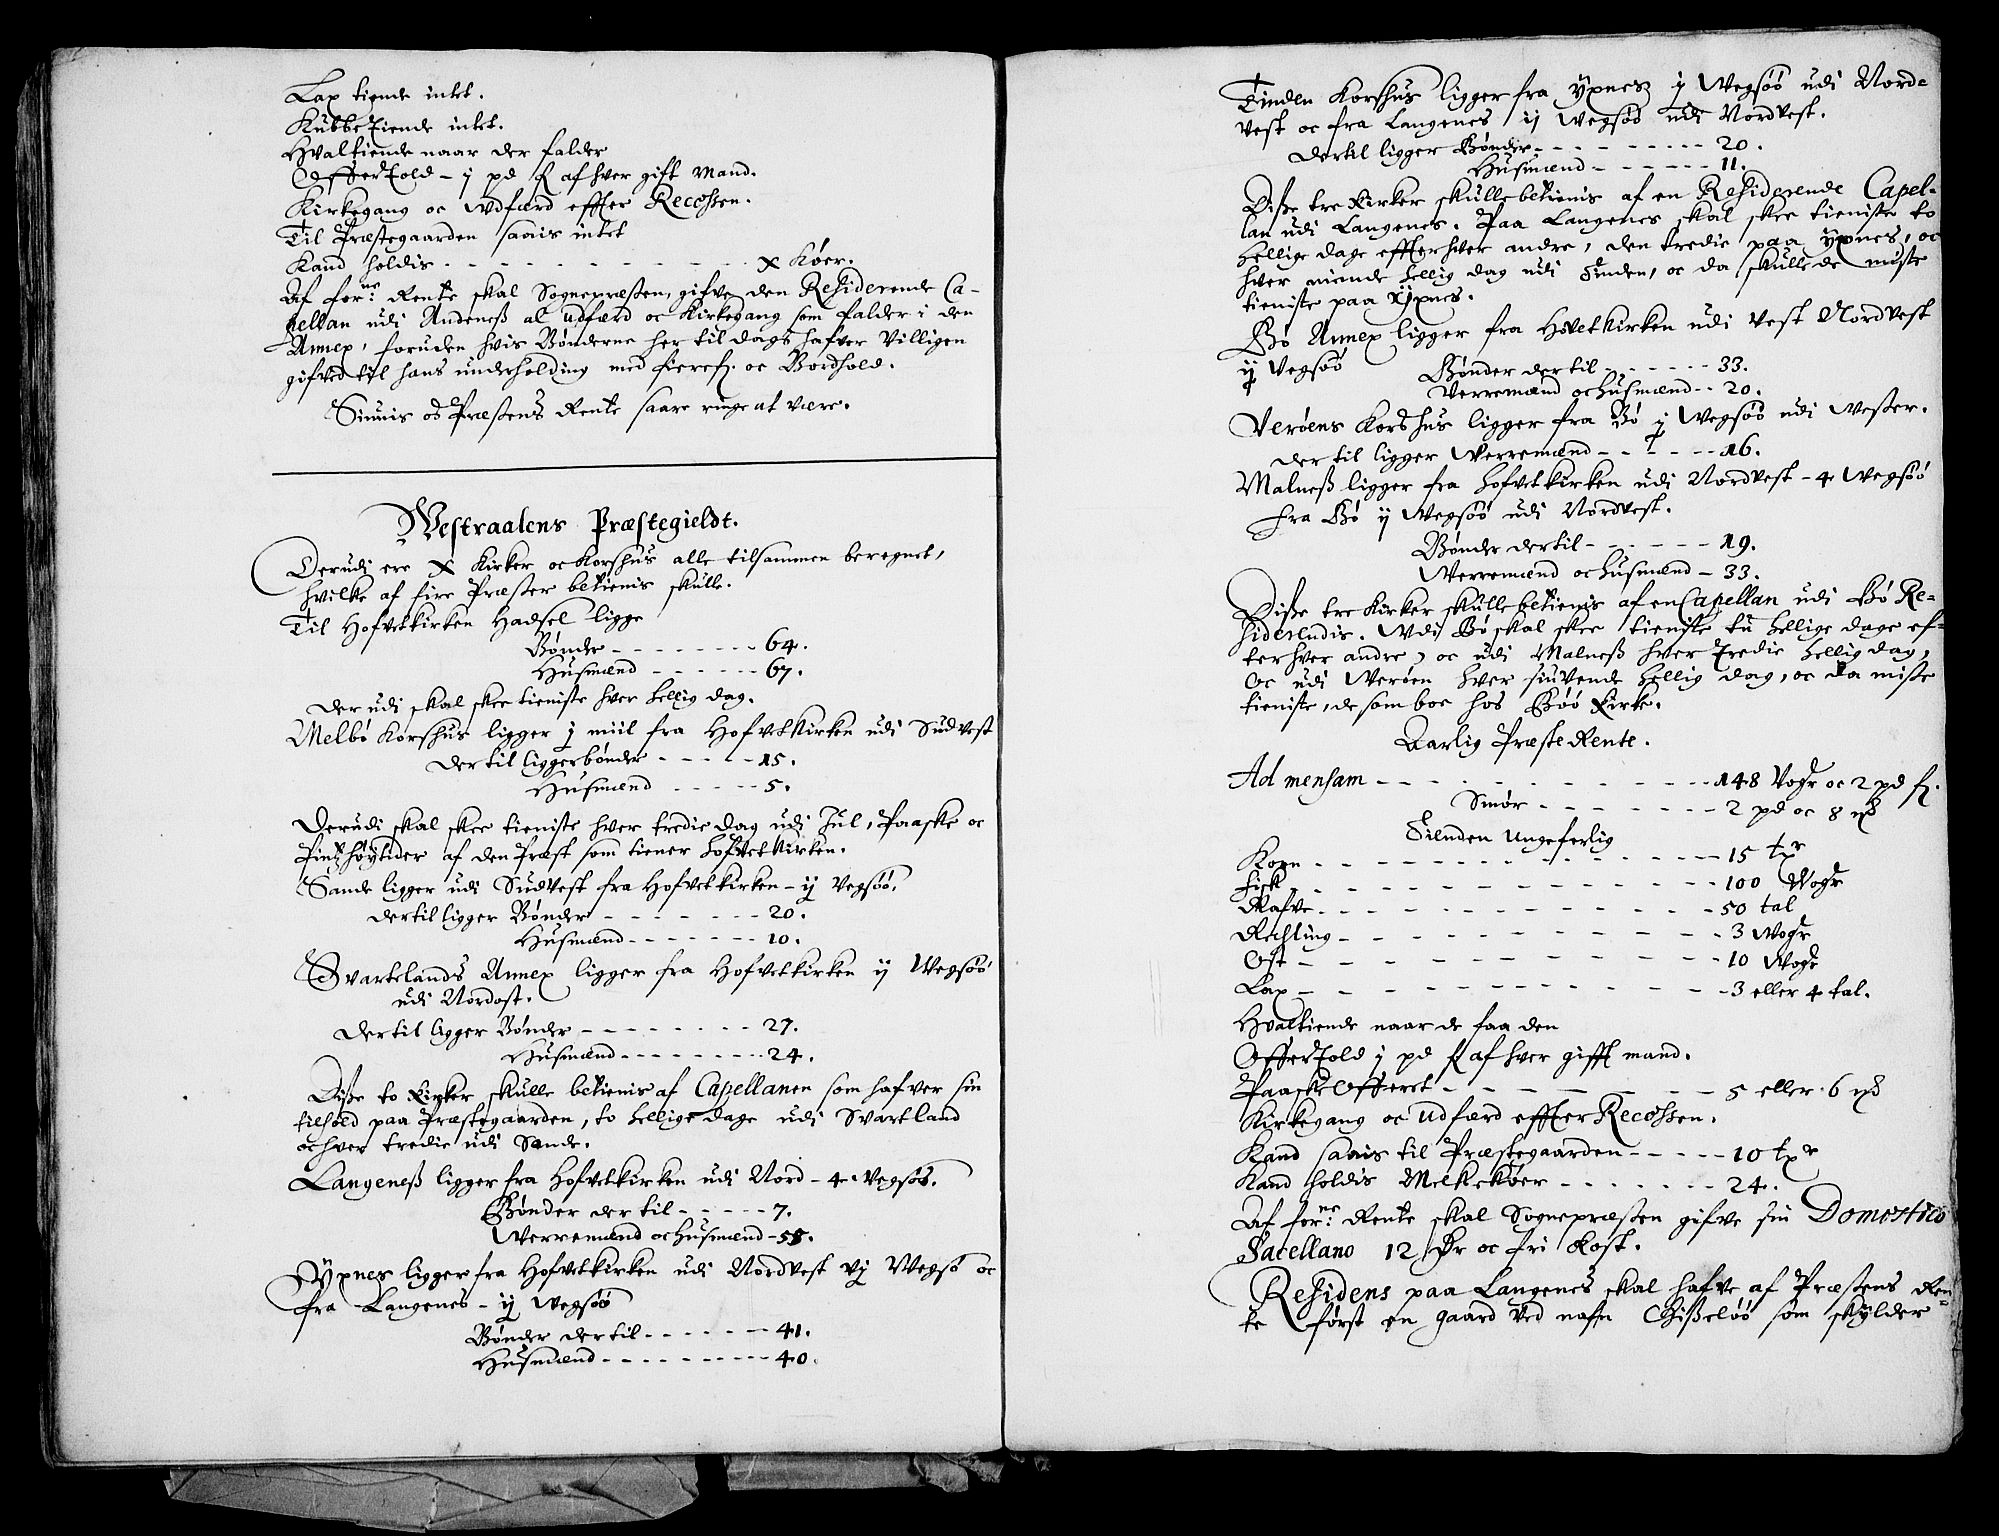 Lax tiende intet.
Kubbetiende intet.
Hvaltiende naar der falder
Offertold - j pd f af hver gift Mand.
Kirkegang oc udfærd effter Recessen.
Til Præstegaarden saais intet
Kand holdis - - - - - - - - - - x Køer.
Af forne: Rente skal Sognepræsten, gifve den Residerende Ca-
pellan udi Andeneß al udfærd oc Kirkegang som falder i den
Annex, foruden hvis Bønderne her til dags hafver villigen
gifved til hans underholding med fieresk. oc Bordhold.
Siunis os Præstens Rente saare ringe at være.
Westraalens Præstegieldt.
Derudi ere X Kirker oc Korshus alle tilsammen beregnet,
hvilke af fire Præster betienis skulle.
Til Hofvetkirken Hadsel ligge
Bønder - - - - - - - - 64.
Husmænd - - - - - - 67.
Der udi skal skee tieniste hver hellig dag.
Melbo Korshus ligger j miil fra Hofvetkirken udi Sudvest
der til ligger bønder - - - - - 15.
Husmænd - - - - - 5.
Derudi skal skee tieniste hver tredie dag udi Jul, Paaske oc
Pintzhøytider af den Præst som tiener Hofvetkirken.
Sande ligger udi Sudvest fra Hofvetkirken - ij Vegsøö.
der til ligger Bønder - - - - - - - 20.
Husmænd - - - - - - - 10.
Svartelands Annex ligger fra Hofvetkirken ij Wegsøö
udi Nordost.
Der til ligger Bønder - - - - - - - - 27.
Husmænd - - - - - - - - 24.
Diße to Kirker skulle betienis af Capellanen som hafver sin
tilhold paa Præstegaarden, to hellige dage udi Svartland
oc hver tredie udi Sande.
Langeneß ligger fra Hofvetkirken udi Nord - 4 Vegsøö.
Bønder der til - - - - - 7.
Werremænd oc Husmænd - 58.
Ypnes ligger fra Hofvetkirken udi Nordvest vj Wegsø oc
fra Langenes - ij Wegsøö
Bønder der til - - - - - - 41.
Husmænd - - - - - - - - - 40.
Tinden Korshus ligger fra Ypnes ij Wegsøö udi Nord-
vest oc fra Langenes ij Wegsøö udi Nordvest.
Der til ligger Bønder - - - - - - - - 20.
Husmænd - - - - - - 11.
Diße tre Kirker skulle betienis af en Residerende Capel-
lan udi Langenes. Paa Langenes skal skee tieniste to
hellige dage effter hver andre, den tredie paa Ypnes, oc
hver niende hellig dag udi Tinden, oc da skulle de miste
tieniste paa Ypnes.
Bø Annex ligger fra Hovetkirken udi Vest Nordvest
ij Vegsøö
Bønder der til - - - - - - 33.
Verremænd oc Husmænd - - 20.
Verøens Korshus ligger fra Bø j Wegsøö udi Wester.
der til ligger Werremænd - - - - - - 16.
Malneß ligger fra Hofvetkirken udi Nordvest - 4 Wegsøö
fra Bø ij Wegsøö udi Nordvest.
Bønder der til - - - - - - 19.
Werremænd oc husmænd - 33.
Diße tre Kirker skulle betienis af en Capellan udi Bø Re-
siderendis. Udi Bø skal skee tieniste tu hellige dage ef-
ter hver andre, oc udi Malneß hver tredie hellig dag,
Oc udi Werøen hver siuvende hellig dag, oc da miste
tieniste, de som boe hos Bøö Kirke.
Aarlig Præste Rente.
Ad mensam - - - - - - - - - - 148 Vogr oc 2 pd f.
Smør - - - - - - - 2 pd oc 8 mk
Tienden ungeferlig
Korn - - - - - - - - - - - - 15 tr
Fisk - - - - - - - - - - - - 100 Wogr
Rafve - - - - - - - - - - - 50 tal
Rechling - - - - - - - - - - 3 Wogr
Ost - - - - - - - - - - - - 10 Wogr
Lax - - - - - - - - - - - - 3 eller 4 tal.
Hvaltiende naar de faa den
Offertold j pd f af hver gifft mand.
Paaske Offeret - - - - - - - - 5 eller 6 mk
Kirkegang oc udfærd effter Recessen.
Kand saais til Præstegaarden - - - - - 10 tr
Kand holdis Melkekøer - - - - - - - 24.
Af forne: Rente skal Sognepræsten gifve sin Domestico
Sacellano 12 Dr oc fri Kost.
Residens paa Langenes skal hafve af Præstens Ren-
te først en gaard ved nafn Gißeløö som skylder